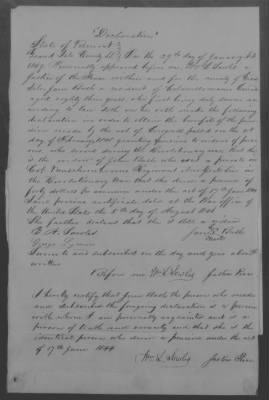 "Declaration"
State of Vermont
Grand Isle County SS On the 29th day of January AD
1849 Personally appeared before me Wm L Sowles a
Justice of the Peace within and for the county of Grand
Isle Jane Bush a resident of
aged eighty three years who first being duly sworn ac-
cording to law doth on her oath make the following
declaration in order to obtain the benefit of the pen-
sion made by the act of Congress passed on the 2d
day of February 1848 granting pensions to widows of per-
sons who served during the Revolutionary war that she
is the widow of John Bush who was a private in
Col. Regiment
the Revolutionary War that she drew a pension of
forty dollars per annum under the act of 17th June 1844
said pension certificate dated at the War office of
the United States the day of August 1844
She further declares that she is still a widow
B. A. Sowles Jane Bush
George
Sworn to and subscribed on the day and year above
written
Before me Wm L Sowles Justice Peace
I hereby certify that Jane Bush the person who made
and subscribed the foregoing declaration is a person
with whom I am personally acquainted and is a
person of truth and veracity and that she is the
identical person who drew a pension under the act
of 17th June 1844
Wm L Sowles Justice Peace